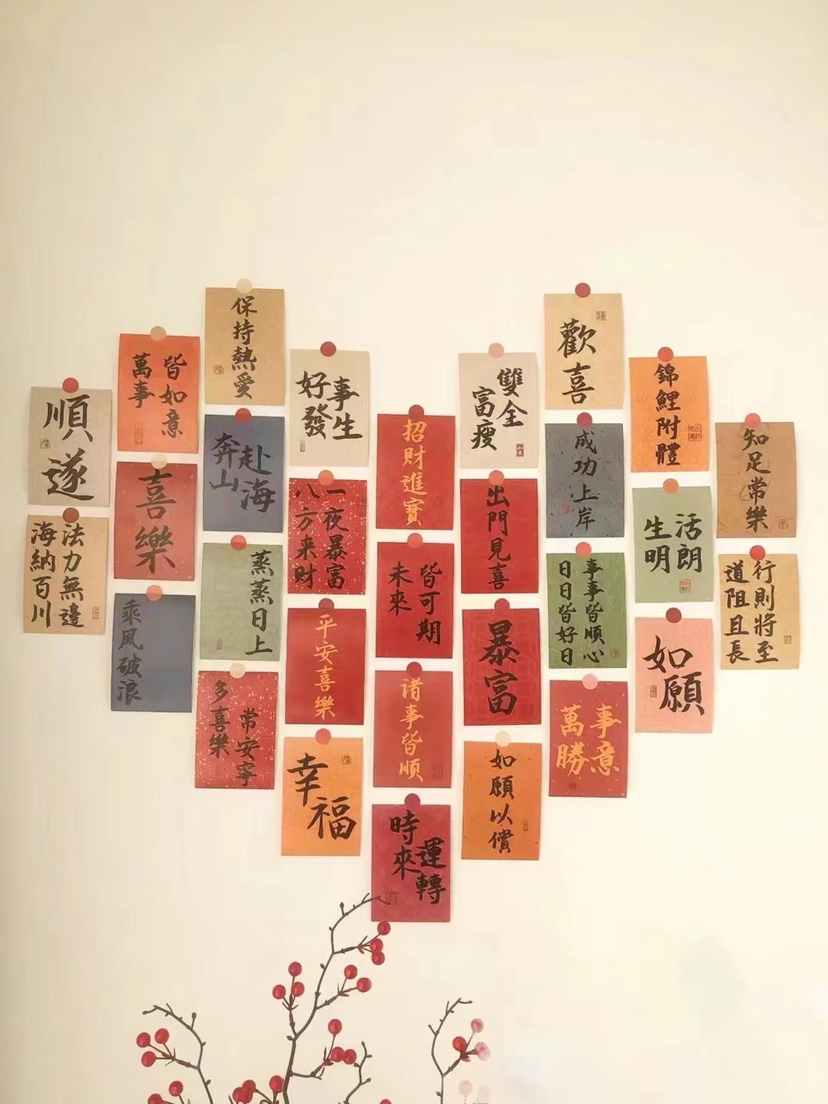 順遂
海納百川
法力無邊
萬事
皆如意
喜樂
乘風破浪
保持熱愛
奔山
赴海
蒸蒸日上
多喜樂
常安寧
好事
發生
八方来財
一夜暴富
平安喜樂
幸福
招財進寶
未來
皆可期
諸事皆順
時來
運轉
富瘦
雙全
出門見喜
暴富
如願以償
歡喜
成功上岸
日日皆好日
事事皆順心
萬事
勝意
錦鯉附體
生活
明朗
如願
知足常樂
道阻且長
行則將至